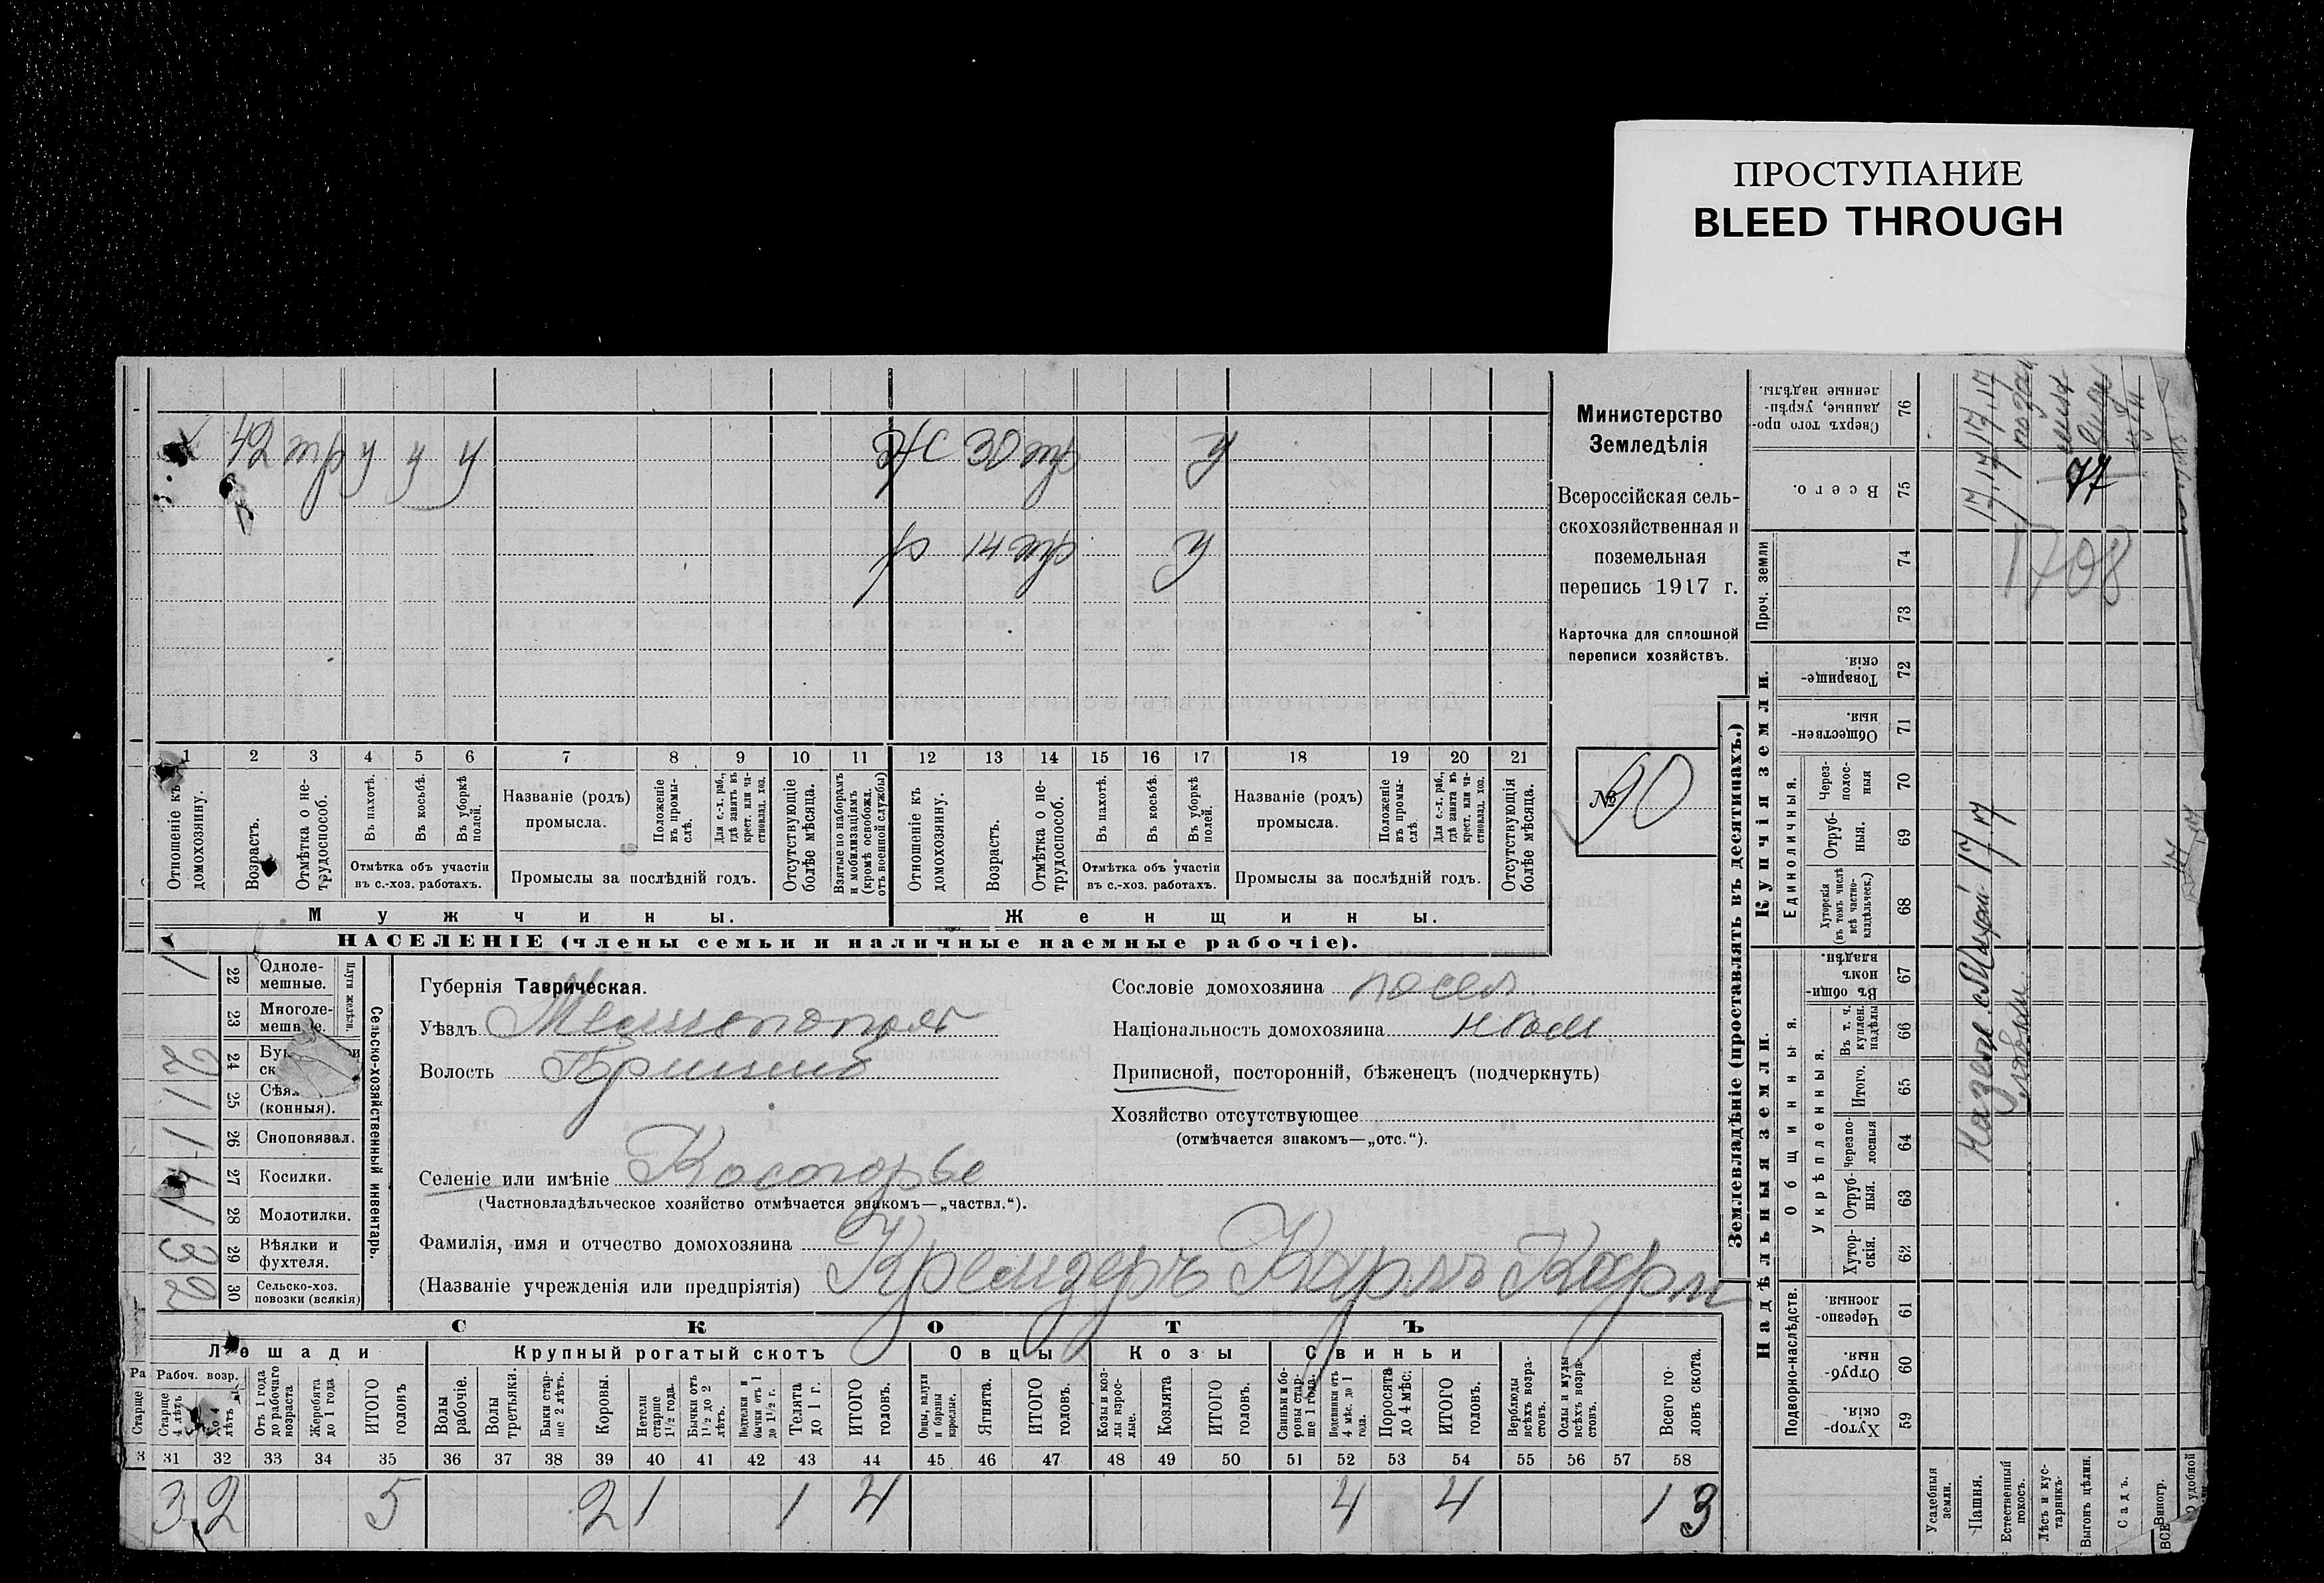 ПРОСТУПАНИЕ
BLEED THROUGH
42 тр у у у
Ж 30 тр у
р 14 тр у
1 2 3 4 5 6 7 8 9 10 11 12 13 14 15 16 17 18 19 20 21
Отношеніе къ домохозяину.
Возрастъ.
Отмѣтка о не-
трудоспособ.
Въ пахотѣ.
Въ косьбѣ.
Въ уборкѣ
полей.
Отмѣтка объ участіи
въ с.-хоз. работахъ.
Названіе (родъ)
промысла.
Положеніе
въ промы-
слѣ.
Для с.-х. раб.,
гдѣ занятъ въ
крест. или ча-
стновлад. хоз.
Промыслы за послѣдній годъ.
Отсутствующіе
болѣе мѣсяца.
Взятые по наборамъ
и мобилизаціямъ
(кромѣ освобожд.
отъ военной службы)
Отношеніе къ
домохозяину.
Возрастъ.
Отмѣтка о не-
трудоспособ.
Въ пахотѣ.
Въ косьбѣ.
Въ уборкѣ
полей.
Отмѣтка объ участіи
въ с.-хоз. работахъ.
Названіе (родъ)
промысла.
Положеніе
въ промы-
слѣ.
Для с.-х. раб.,
гдѣ занята въ
крест. или ча-
стновлад. хоз.
Промыслы за послѣдній годъ.
Отсутствующія
болѣе мѣсяца.
Мужчины.
Женщины.
НАСЕЛЕНІЕ (члены семьи и наличные наемные рабочіе).
Министерство
Земледѣлія
Всероссійская сель-
скохозяйственная и
поземельная
перепись 1917 г.
Карточка для сплошной
переписи хозяйствъ.
№ 90
Губернія Таврическая.
Уѣздъ
Волость
Селеніе или имѣніе Костогрье
(Частновладѣльческое хозяйство отмѣчается знакомъ—„частвл.“).
Фамилія, имя и отчество домохозяина
(Названіе учрежденія или предпріятія) Кремзеръ Карлъ Карл
Сословіе домохозяина посел
Національность домохозяина нѣм
Приписной, посторонній, бѣженецъ (подчеркнуть)
Хозяйство отсутствующее
(отмѣчается знакомъ—„отс.“).
Сельско-хозяйственный инвентарь.
Плуги желѣзн.
22 Одноле-
мешные. 1
23 Многоле-
24
25 (конныя). 1
26 Сноповязал. 1
27 Косилки.
28 Молотилки. 1
29 Вѣялки и
фухтеля.
30 Сельско-хоз.
повозки (всякія)
СКОТЪ
Лошади
Рабоч. возр.
Старше
4 лѣтъ
До 4
лѣтъ
Отъ 1 года
до рабочаго
возраста
Жеребята
до 1 года
ИТОГО
головъ
Крупный рогатый скотъ
Волы
рабочіе.
Волы
третьяки.
Быки стар-
ше 2 лѣтъ.
Коровы.
Нетели
старше
1½ года.
Бычки отъ
1½ до 2
лѣтъ.
Подтелки и
бычки отъ 1
до 1½ г.
Телята
до 1 г.
ИТОГО
головъ.
Овцы
Овцы, валухи
и бараны
взрослые.
Ягнята.
ИТОГО
головъ.
Козы
Козы и коз-
лы взрос-
лые.
Козлята
ИТОГО
головъ.
Свиньи
Свиньи и бо-
ровы стар-
ше 1 года.
Подсвинки отъ
4 мѣс. до 1
года.
Поросята
до 4 мѣс.
ИТОГО
головъ.
Верблюды
всѣхъ возра-
стовъ.
Ослы и мулы
всѣхъ возра-
стовъ.
Всего го-
ловъ скота.
31 32 33 34 35 36 37 38 39 40 41 42 43 44 45 46 47 48 49 50 51 52 53 54 55 56 57 58
3 2 5 2 1 1 4 4 4 13
Землевладѣніе (проставлять въ десятинахъ.)
Надѣльныя земли.
Купчія земли.
Проч. земли
Подворно-наслѣдств.
Общинныя.
Укрѣпленныя.
Единоличныя.
Хутор-
скія. 59
Отруб-
ныя. 60
Черезпо-
лосныя. 61
Хутор-
скія. 62
Отруб-
ныя. 63
Черезпо-
лосныя 64
Итого. 65
Въ т. ч.
куплен.
надѣлы 66
Въ общин-
номъ
владѣн. 67
Хуторскія
(въ томъ числѣ
всѣ частно-
владѣльческ.) 68
Отруб-
ныя. 69
Черезъ-
полос-
ныя 70
Обществен-
ныя. 71
Товарище-
скія. 72
73
74
Всего. 75
Сверхъ того про-
данные, укрѣп-
ленные надѣлы. 76
Усадебныя
земли.
Пашня.
Естественный
покосъ.
Лѣсъ и кус-
тарникъ.
Выгонъ цѣлин.
Садъ.
Виногр.
77
1708